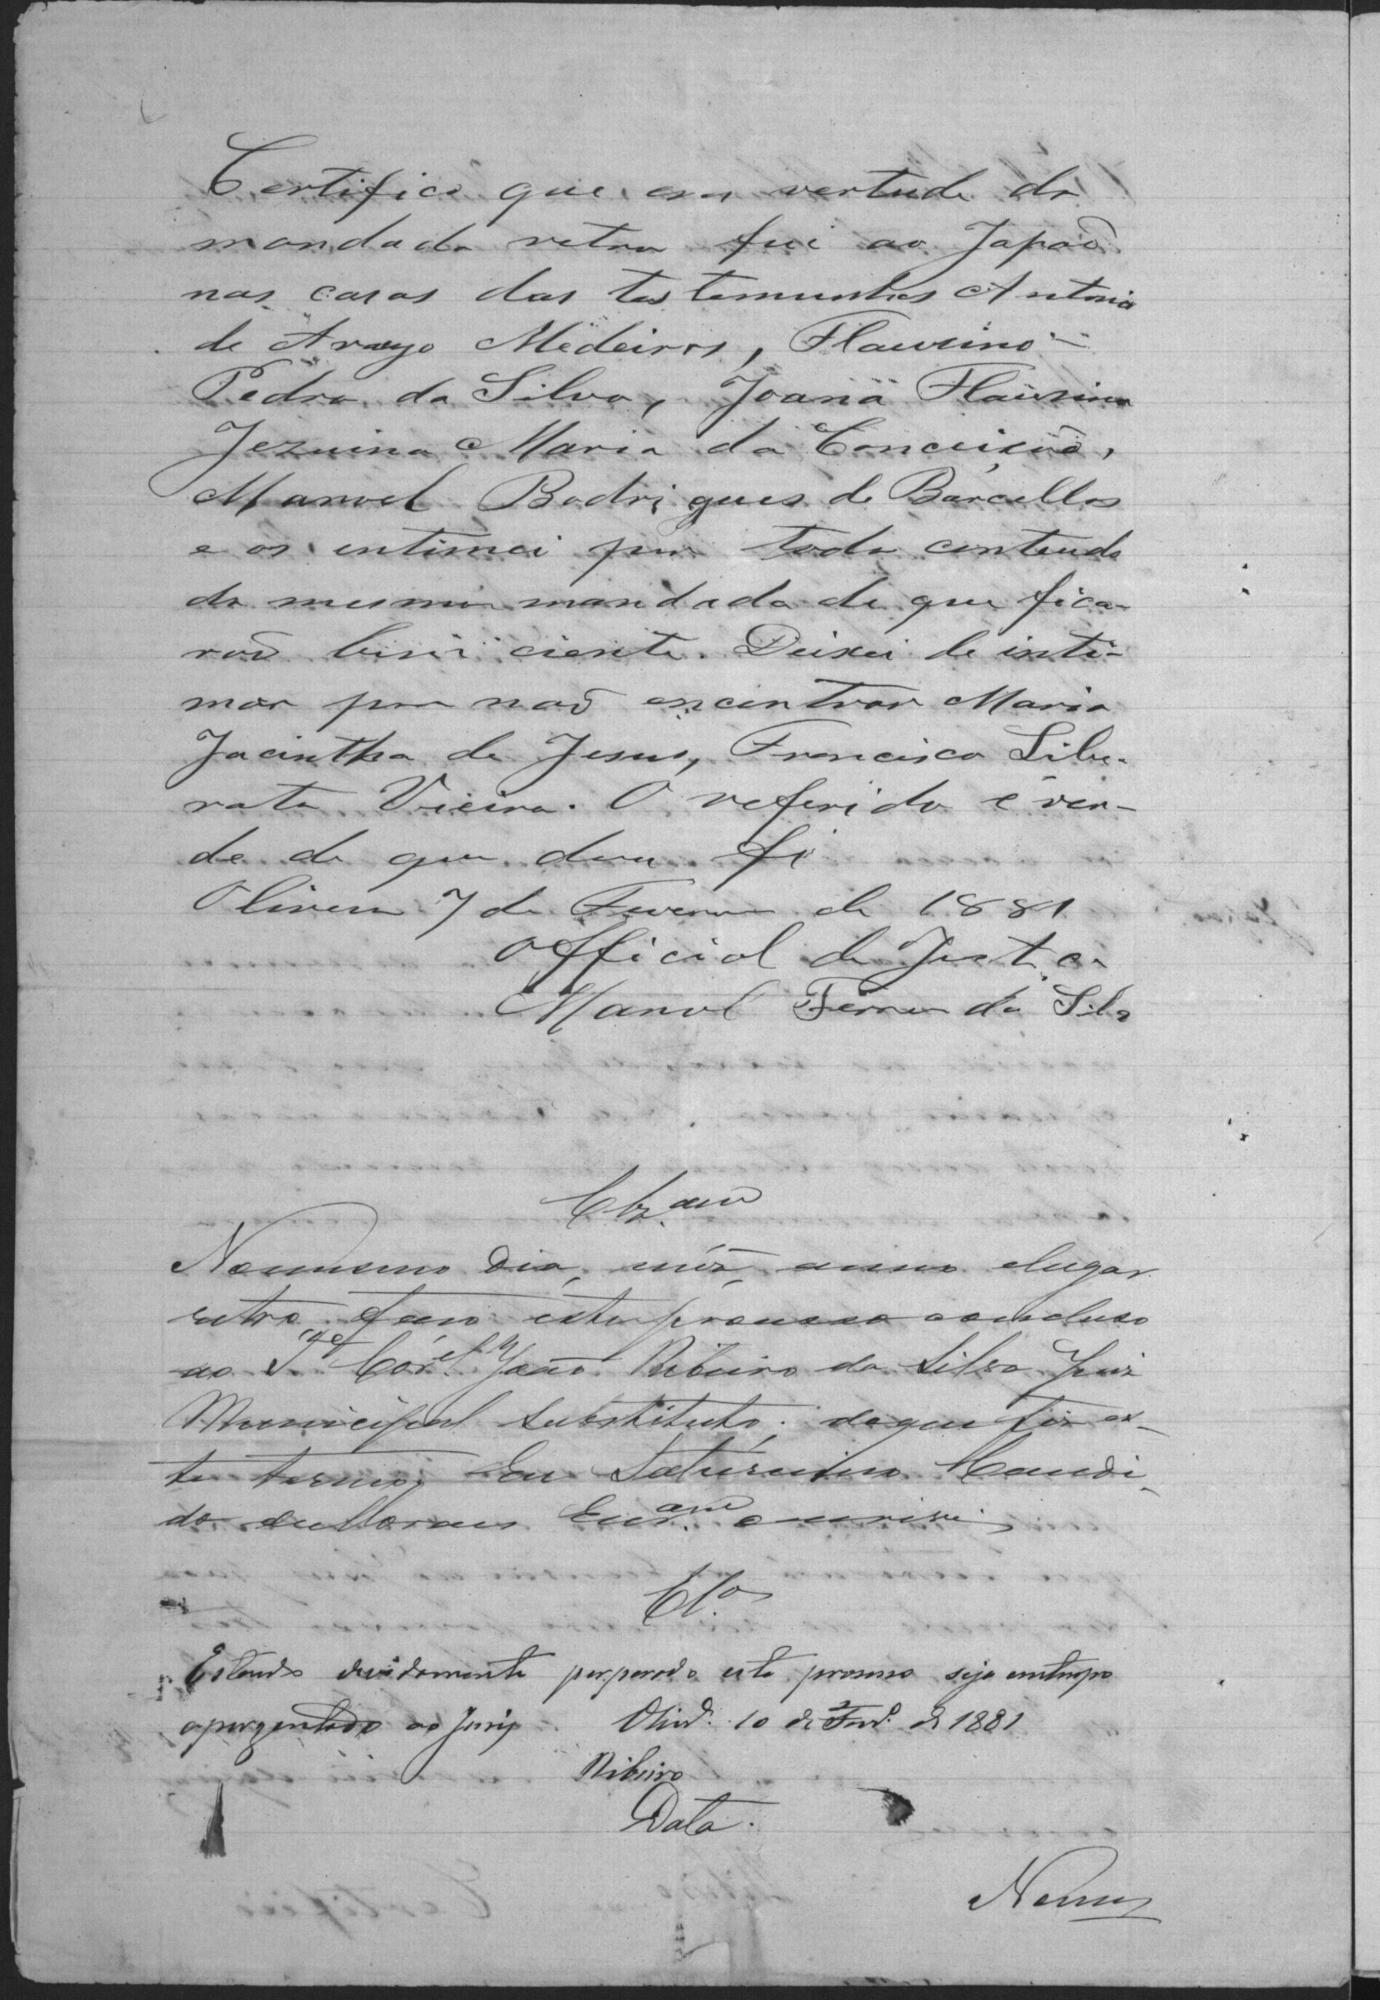 Certifico que em vertude do
mandado retro fui ao Japaõ
nas casas das testemunhas Antonio
de Araujo Medeiros, Flauzino
Pedro da Silva, Joana Flauzina
Jezuina Maria da Conceiçaõ,
Manoel Rodrigues de Barcellos
e os intimei por todo conteudo
do mesmo mandado de que fica-
raõ bem ciente. Deixei de inti-
mar por naõ encontrar Maria
Jacintha de Jesus, Francisco Libe-
rato Vieira. O referido é ver-
de de que dou fé
Oliveira 7 de Fevereiro de 1881
Official de Justiça
Manoel Ferreira da Silva
Clz.am
No mesmo dia, mez, anno elugar
retro, faço este processo concluso
ao Te Corel João Ribeiro da Silva Juiz
Municipal Substituto; do que fiz es-
te termo. Eu Saturnino Candi-
do Escr.am o escrivi
Cl.os
Estando devidamente perparado este processo seja em tempo
aprezentado ao Jury. Olivr.a 10 de Fevr.o de 1881
Ribeiro
Data.
No mes